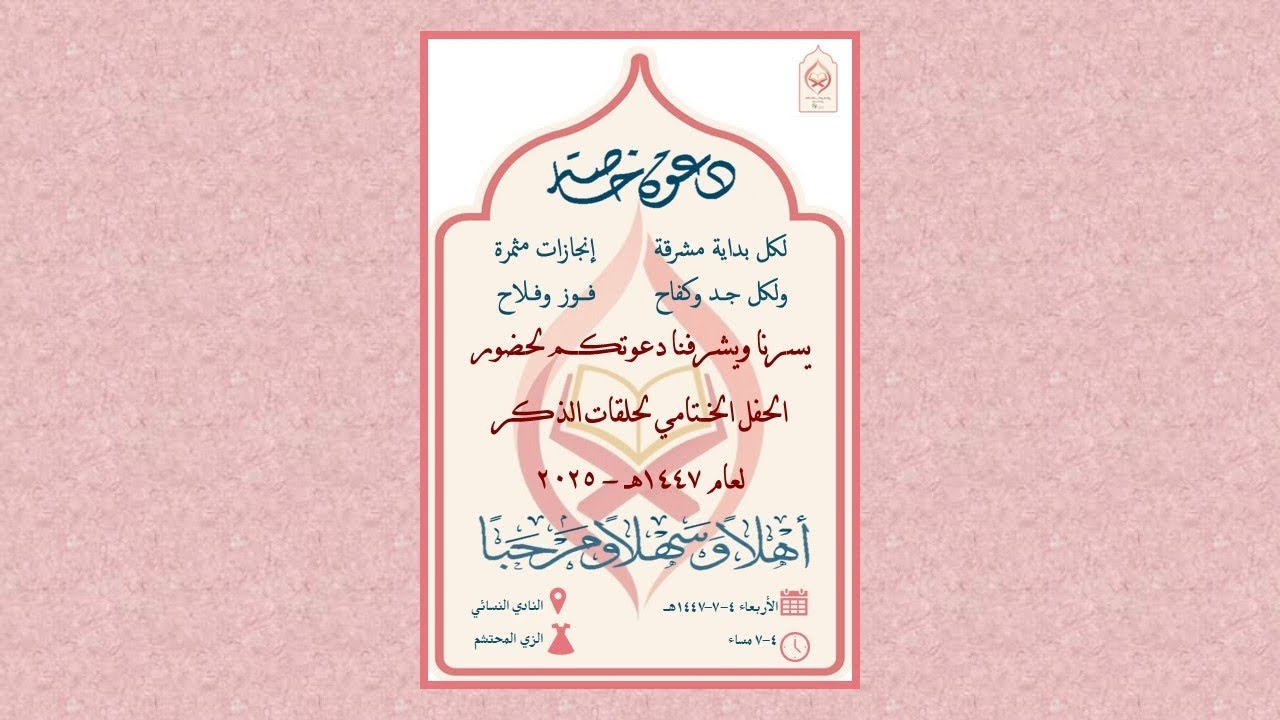 دعوة خاصة
لكل بداية مشرقة إنجازات مثمرة
ولكل جد وكفاح فوز وفلاح
يسرنا ويشرفنا دعوتكم لحضور
الحفل الختامي لحلقات الذكر
لعام ١٤٤٧هـ – ٢٠٢٥
أهلاً وَسَهلاً ومَرحَبًا
الأربعاء ٤-٧-١٤٤٧هـ
النادي النسائي
٤-٧ مساء
الزي المحتشم